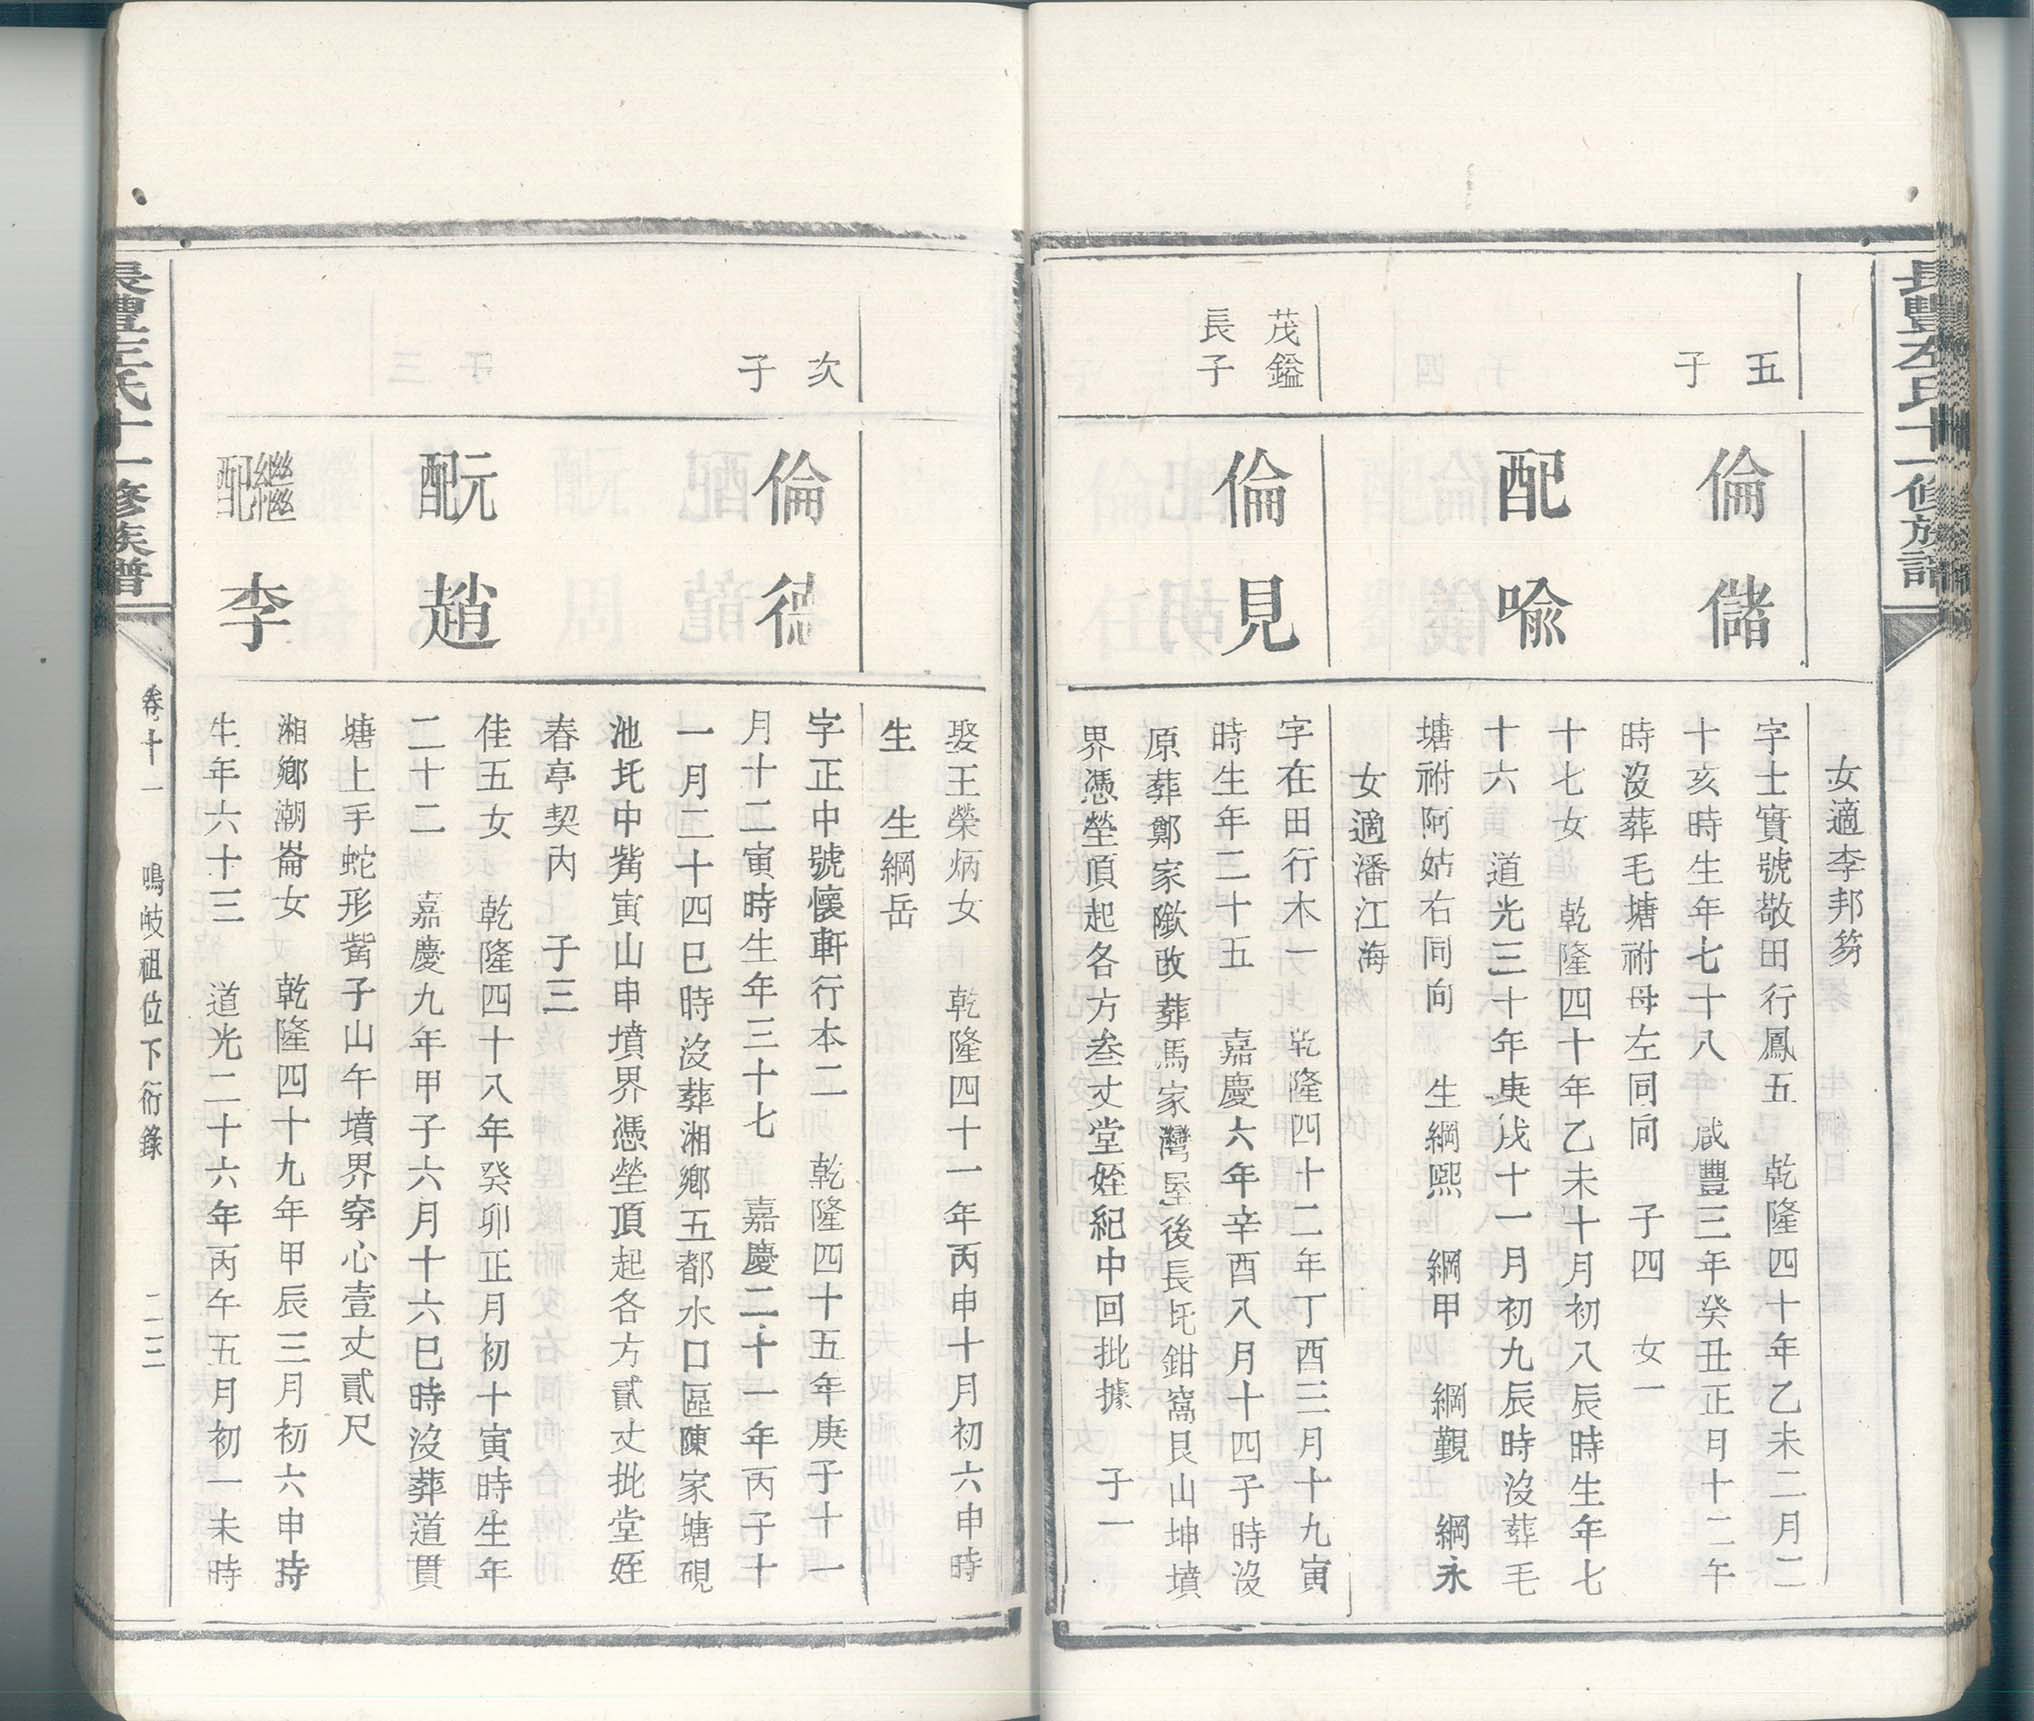 長豐左氏十一修族譜
五子
倫儲
配喩
茂鎰長子
倫見
女適李邦笏
字士實號敬田行鳳五　乾隆四十年乙未二月二
十亥時生年七十八　咸豐三年癸丑正月十二午
時沒葬毛塘祔母左同向　子四　女一
十七女　乾隆四十年乙未十月初八辰時生年七
十六　道光三十年庚戌十一月初九辰時沒葬毛
塘祔阿姑右同向　生綱熙　綱甲　綱觀　綱永
女適潘江海
字在田行木一　乾隆四十二年丁酉三月十九寅
時生年二十五　嘉慶六年辛酉八月十四子時沒
原葬鄭家墩改葬馬家灣屋後長坵鉗窩艮山坤墳
界憑塋頂起各方叁丈堂姪紀中回批據　子一
次子
倫德
元配趙
繼配李
娶王榮炳女　乾隆四十一年丙申十月初六申時
生　生綱岳
字正中號懷軒行本二　乾隆四十五年庚子十一
月十二寅時生年三十七　嘉慶二十一年丙子十
一月二十四巳時沒葬湘鄉五都水口區陳家塘硯
池坵中觜寅山申墳界憑塋頂起各方貳丈批堂姪
春亭契內　子三
佳五女　乾隆四十八年癸卯正月初十寅時生年
二十二　嘉慶九年甲子六月十六巳時沒葬道貫
塘上手蛇形觜子山午墳界穿心壹丈貳尺
湘鄉潮崙女　乾隆四十九年甲辰三月初六申時
生年六十三　道光二十六年丙午五月初一未時
長豐左氏十一修族譜
卷十一　鳴岐祖位下衍錄　二三